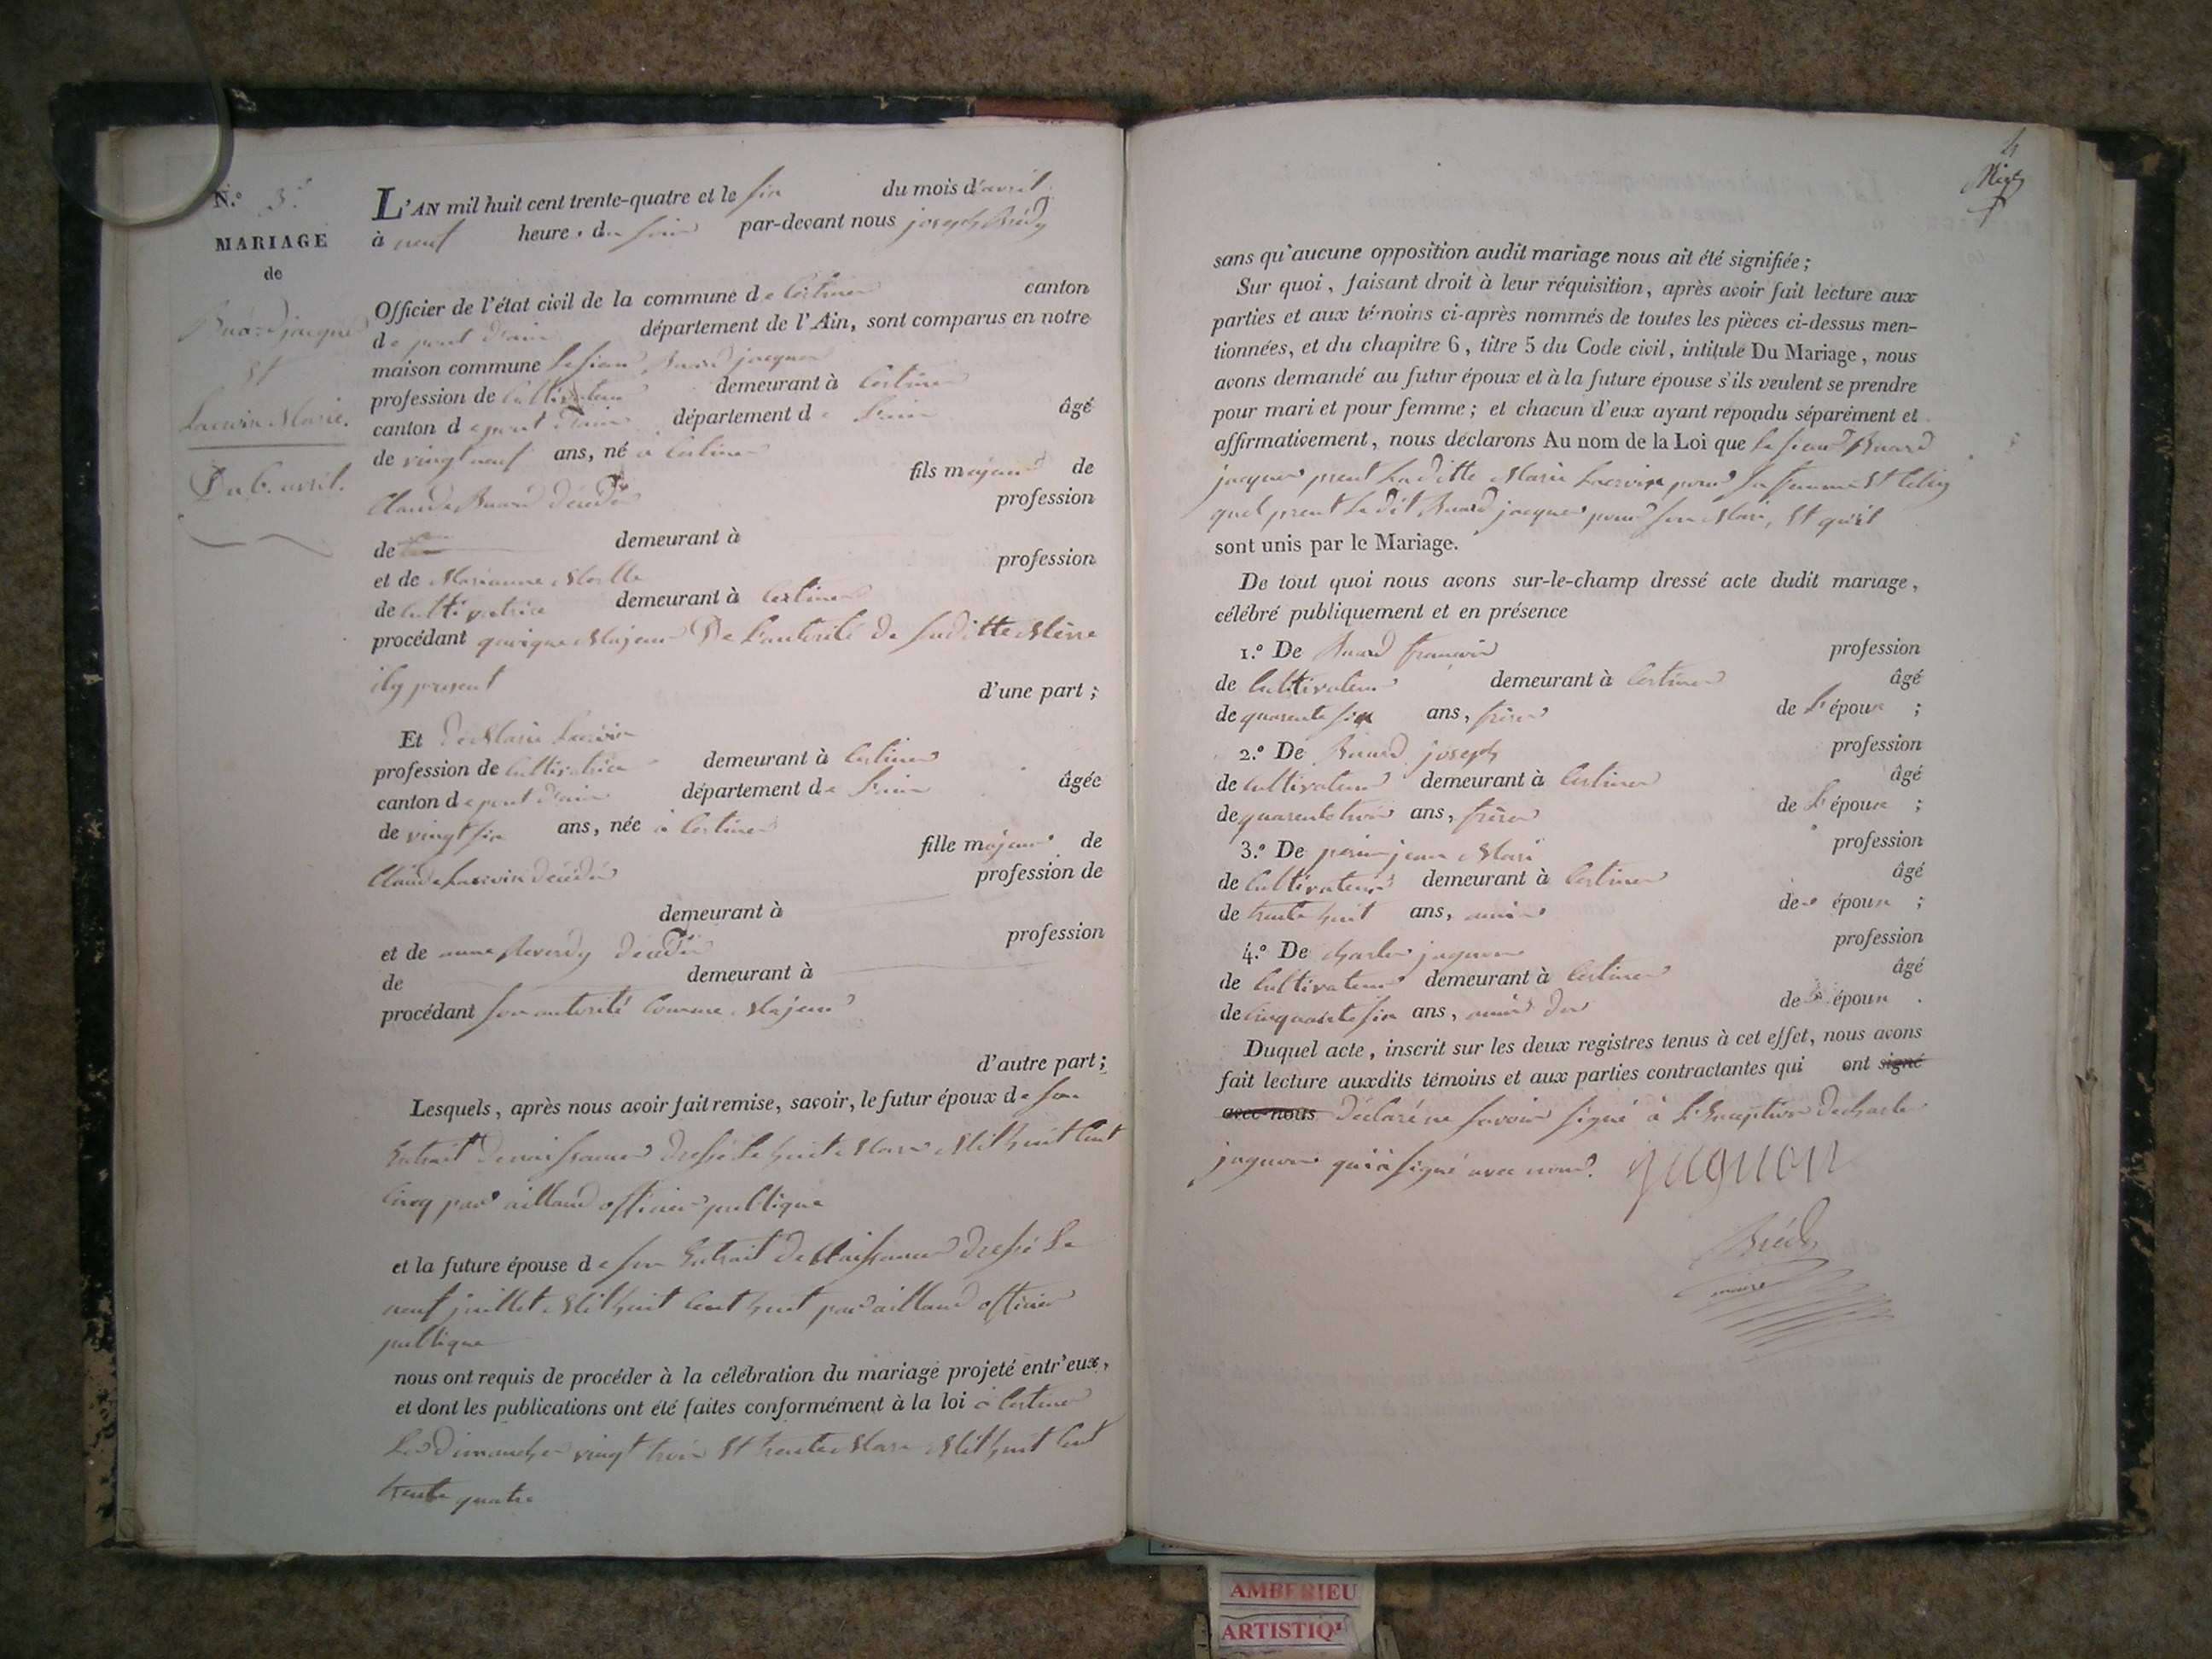 N.º 3.
MARIAGE
de
Buard jacques
Et
Lacroix Marie.
Du 6. avril.
L'AN mil huit cent trente-quatre et le six du mois d'avril
à neuf heures du soir par-devant nous joseph Brédy
Officier de l'état civil de la commune de Certines canton
de pont d'ain département de l'Ain, sont comparus en notre
maison commune le sieur Buard jacques
profession de Cultivateur demeurant à Certines
canton de pont d'ain département de L'ain âgé
de vingt neuf ans, né à Certines
fils majeur de
Claude Buard décédé profession
de demeurant à
et de Marianne Morelle profession
de Cultivatrice demeurant à Certines
procédant quoique Majeur De L'autorité de saditte Mère
icy présent d'une part ;
Et de Marie Lacroix
profession de Cultivatrice demeurant à Certines
canton de pont d'ain département de L'ain âgée
de vingt six ans, née à Certines
fille majeure de
Claude Lacroix décédé profession de
demeurant à
et de anne Reverdy décédée profession
de demeurant à
procédant son autorité Comme Majeur
d'autre part ;
Lesquels, après nous avoir fait remise, savoir, le futur époux de son
Extrait de naissance dressé le huit Mars Mil huit Cent
Cinq par aillaud officier publique
et la future épouse de son Extrait de Naissance dressé Le
neuf juillet Mil huit Cent huit par aillaud officier
publique
nous ont requis de procéder à la célébration du mariage projeté entr'eux,
et dont les publications ont été faites conformément à la loi à Certines
Les dimanche vingt trois Et trente Mars Mil huit Cent
trente quatre
4
sans qu'aucune opposition audit mariage nous ait été signifiée ;
Sur quoi, faisant droit à leur réquisition, après avoir fait lecture aux
parties et aux témoins ci-après nommés de toutes les pièces ci-dessus men-
tionnées, et du chapitre 6, titre 5 du Code civil, intitulé Du Mariage, nous
avons demandé au futur époux et à la future épouse s'ils veulent se prendre
pour mari et pour femme ; et chacun d'eux ayant répondu séparément et
affirmativement, nous déclarons Au nom de la Loi que le sieur Buard
jacques prent Laditte Marie Lacroix pour sa femme Et
prent Le dit Buard jacques pour son Mari, Et qu'ils
sont unis par le Mariage.
De tout quoi nous avons sur-le-champ dressé acte dudit mariage,
célébré publiquement et en présence
1.º De Buard francois profession
de Cultivateur demeurant à Certines âgé
de quarente six ans, frère de L'époux ;
2.º De Buard joseph profession
de Cultivateur demeurant à Certines âgé
de quarente trois ans, frère de L'époux ;
3.º De perin jean Mari profession
de Cultivateur demeurant à Certines âgé
de trente huit ans, amis des époux ;
4.º De charles juguon profession
de Cultivateur demeurant à Certines âgé
de Cinquante six ans, amis des époux .
Duquel acte, inscrit sur les deux registres tenus à cet effet, nous avons
fait lecture auxdits témoins et aux parties contractantes qui ont signé
avec nous Déclaré ne savoir signé à L'Exception de charles
juguon qui à signé avec nous. juguon
Brédy
maire
AMBERIEU
ARTISTIQ